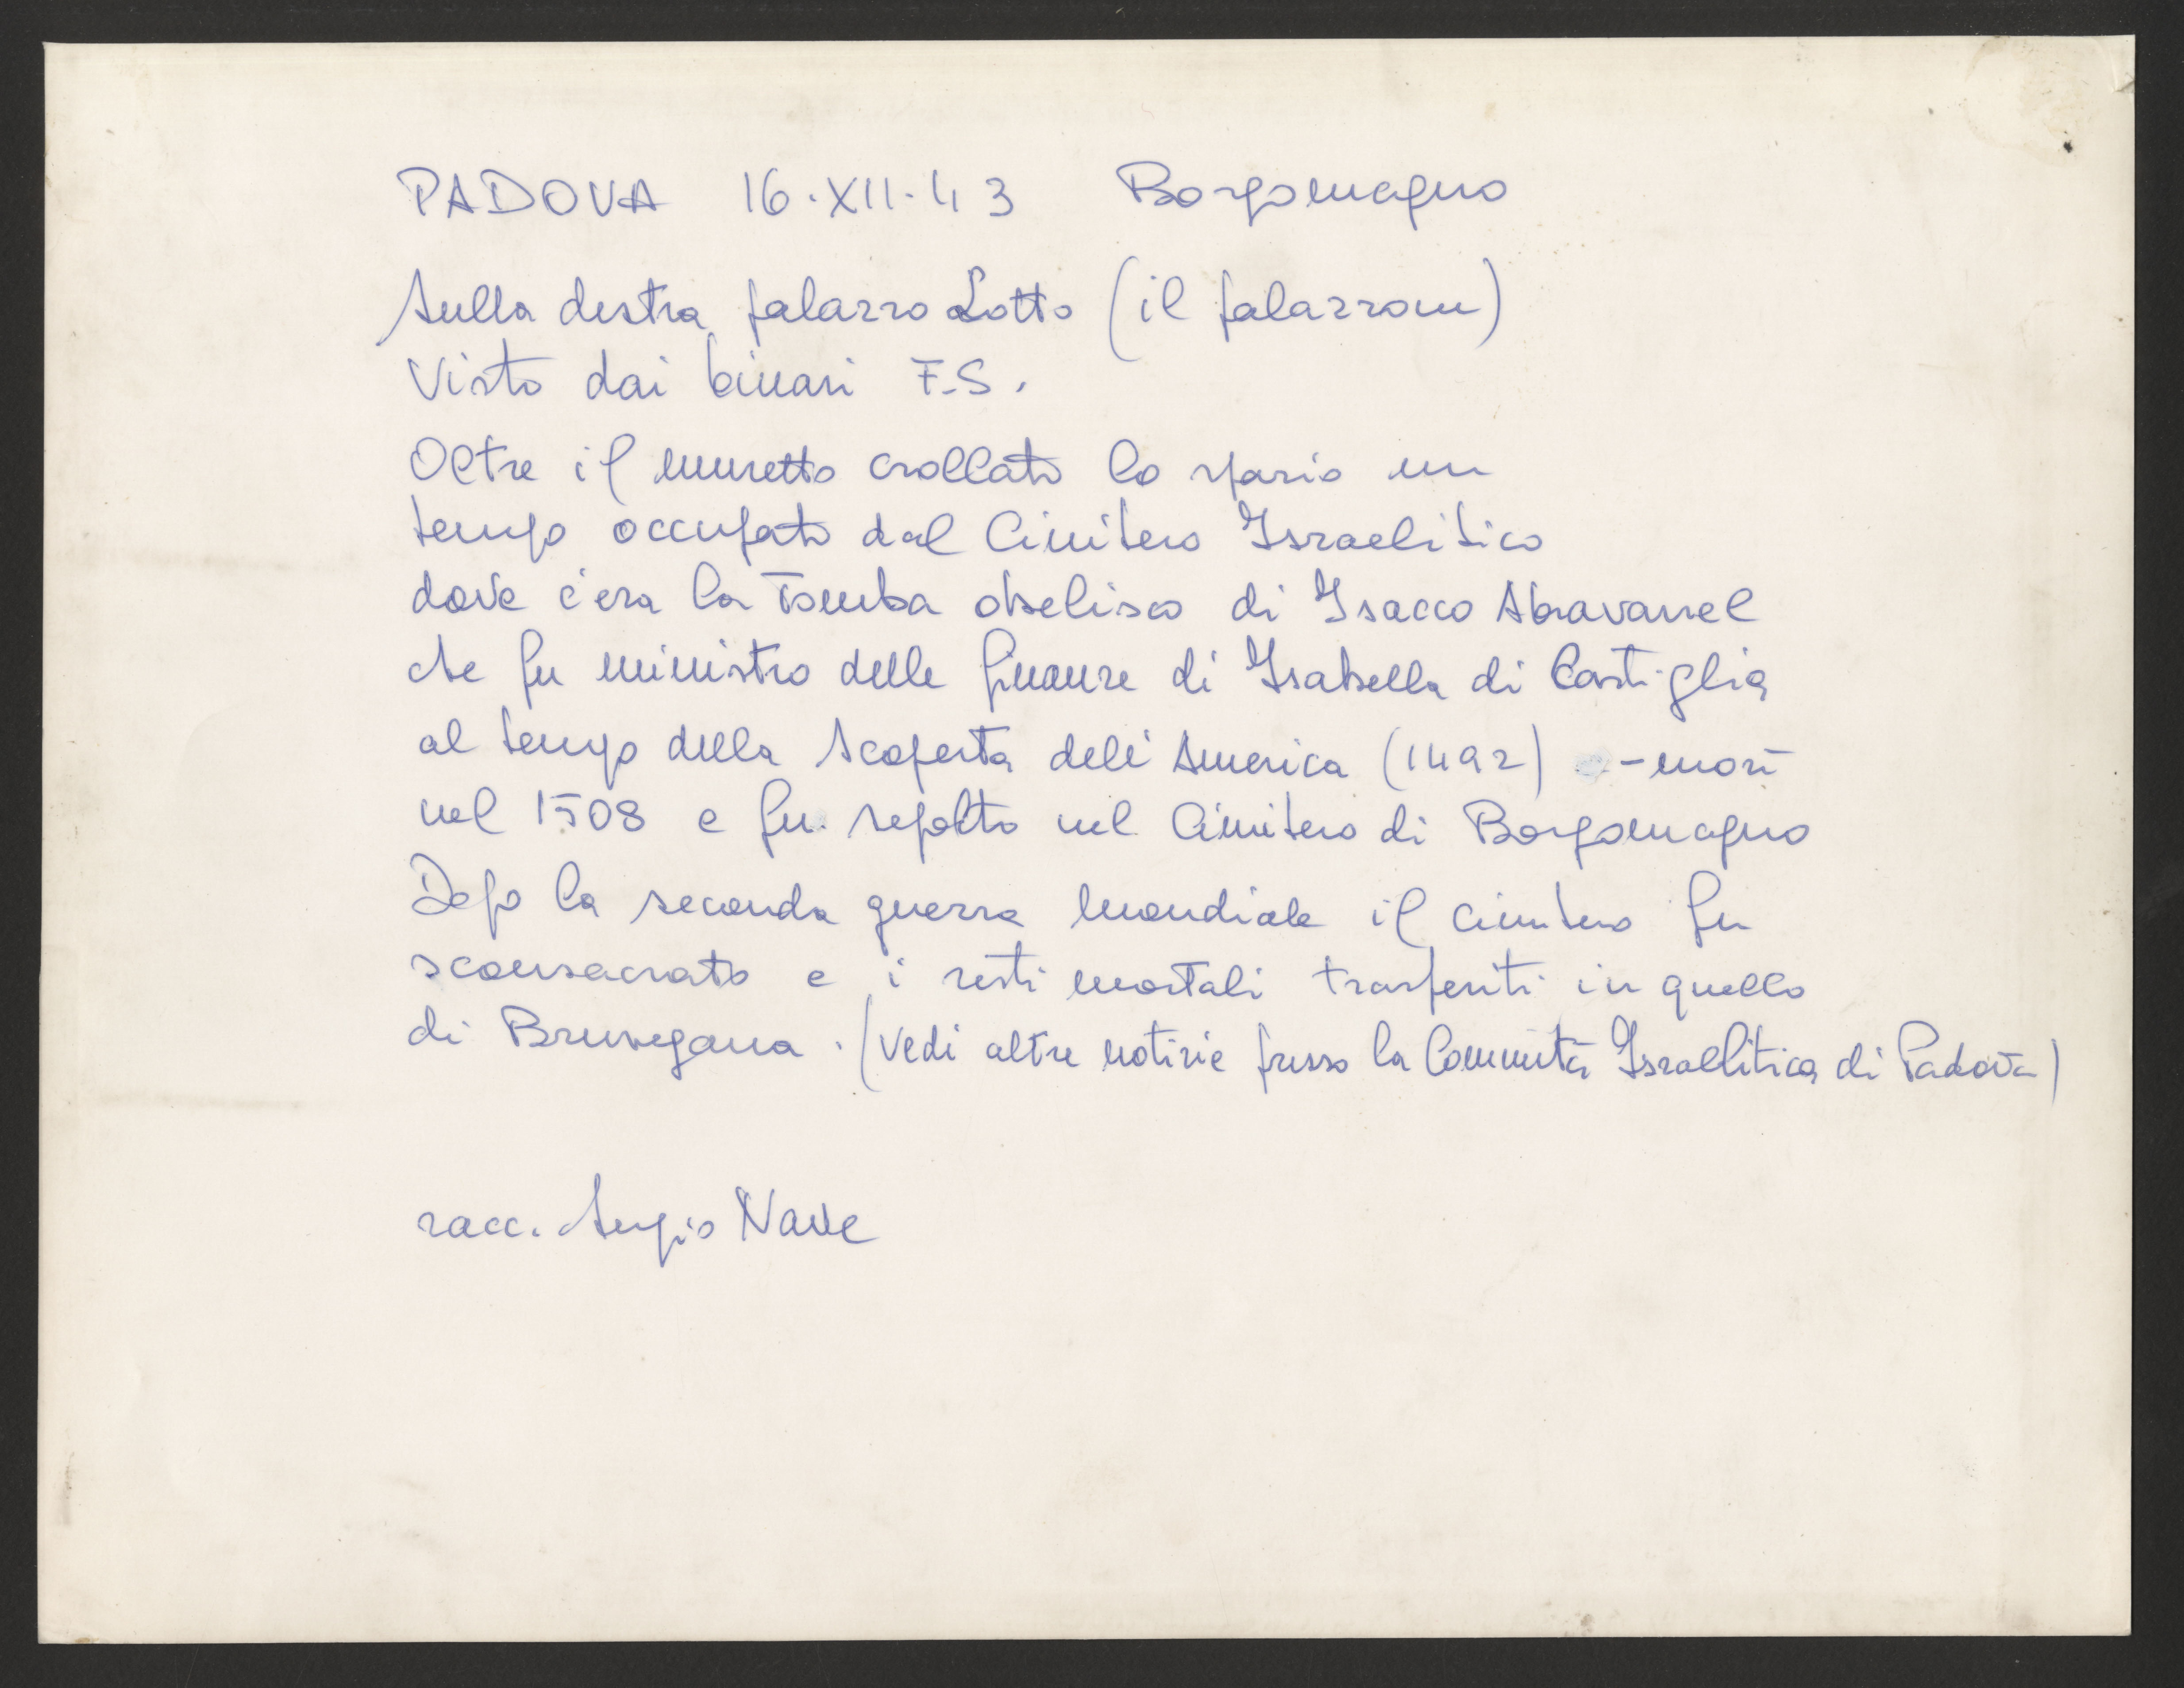 PADOVA 16.XII.43 Borgomagno
Sulla destra palazzo Lotto (il palazzone)
Visto dai binari F.S.
Oltre il muretto crollato lo spazio un
tempo occupato dal Cimitero Israelitico
dove c'era la Tomba obelisco di Isacco Abravanel
che fu ministro delle finanze di Isabella di Castiglia
al tempo della scoperta dell'America (1492) - morì
nel 1508 e fu sepolto nel Cimitero di Borgomagno
Dopo la seconda guerra mondiale il cimitero fu
sconsacrato e i resti mortali trasferiti in quello
di Brusegana. (Vedi altre notizie presso la Comunità Israelitica di Padova)
racc. Sergio Nave